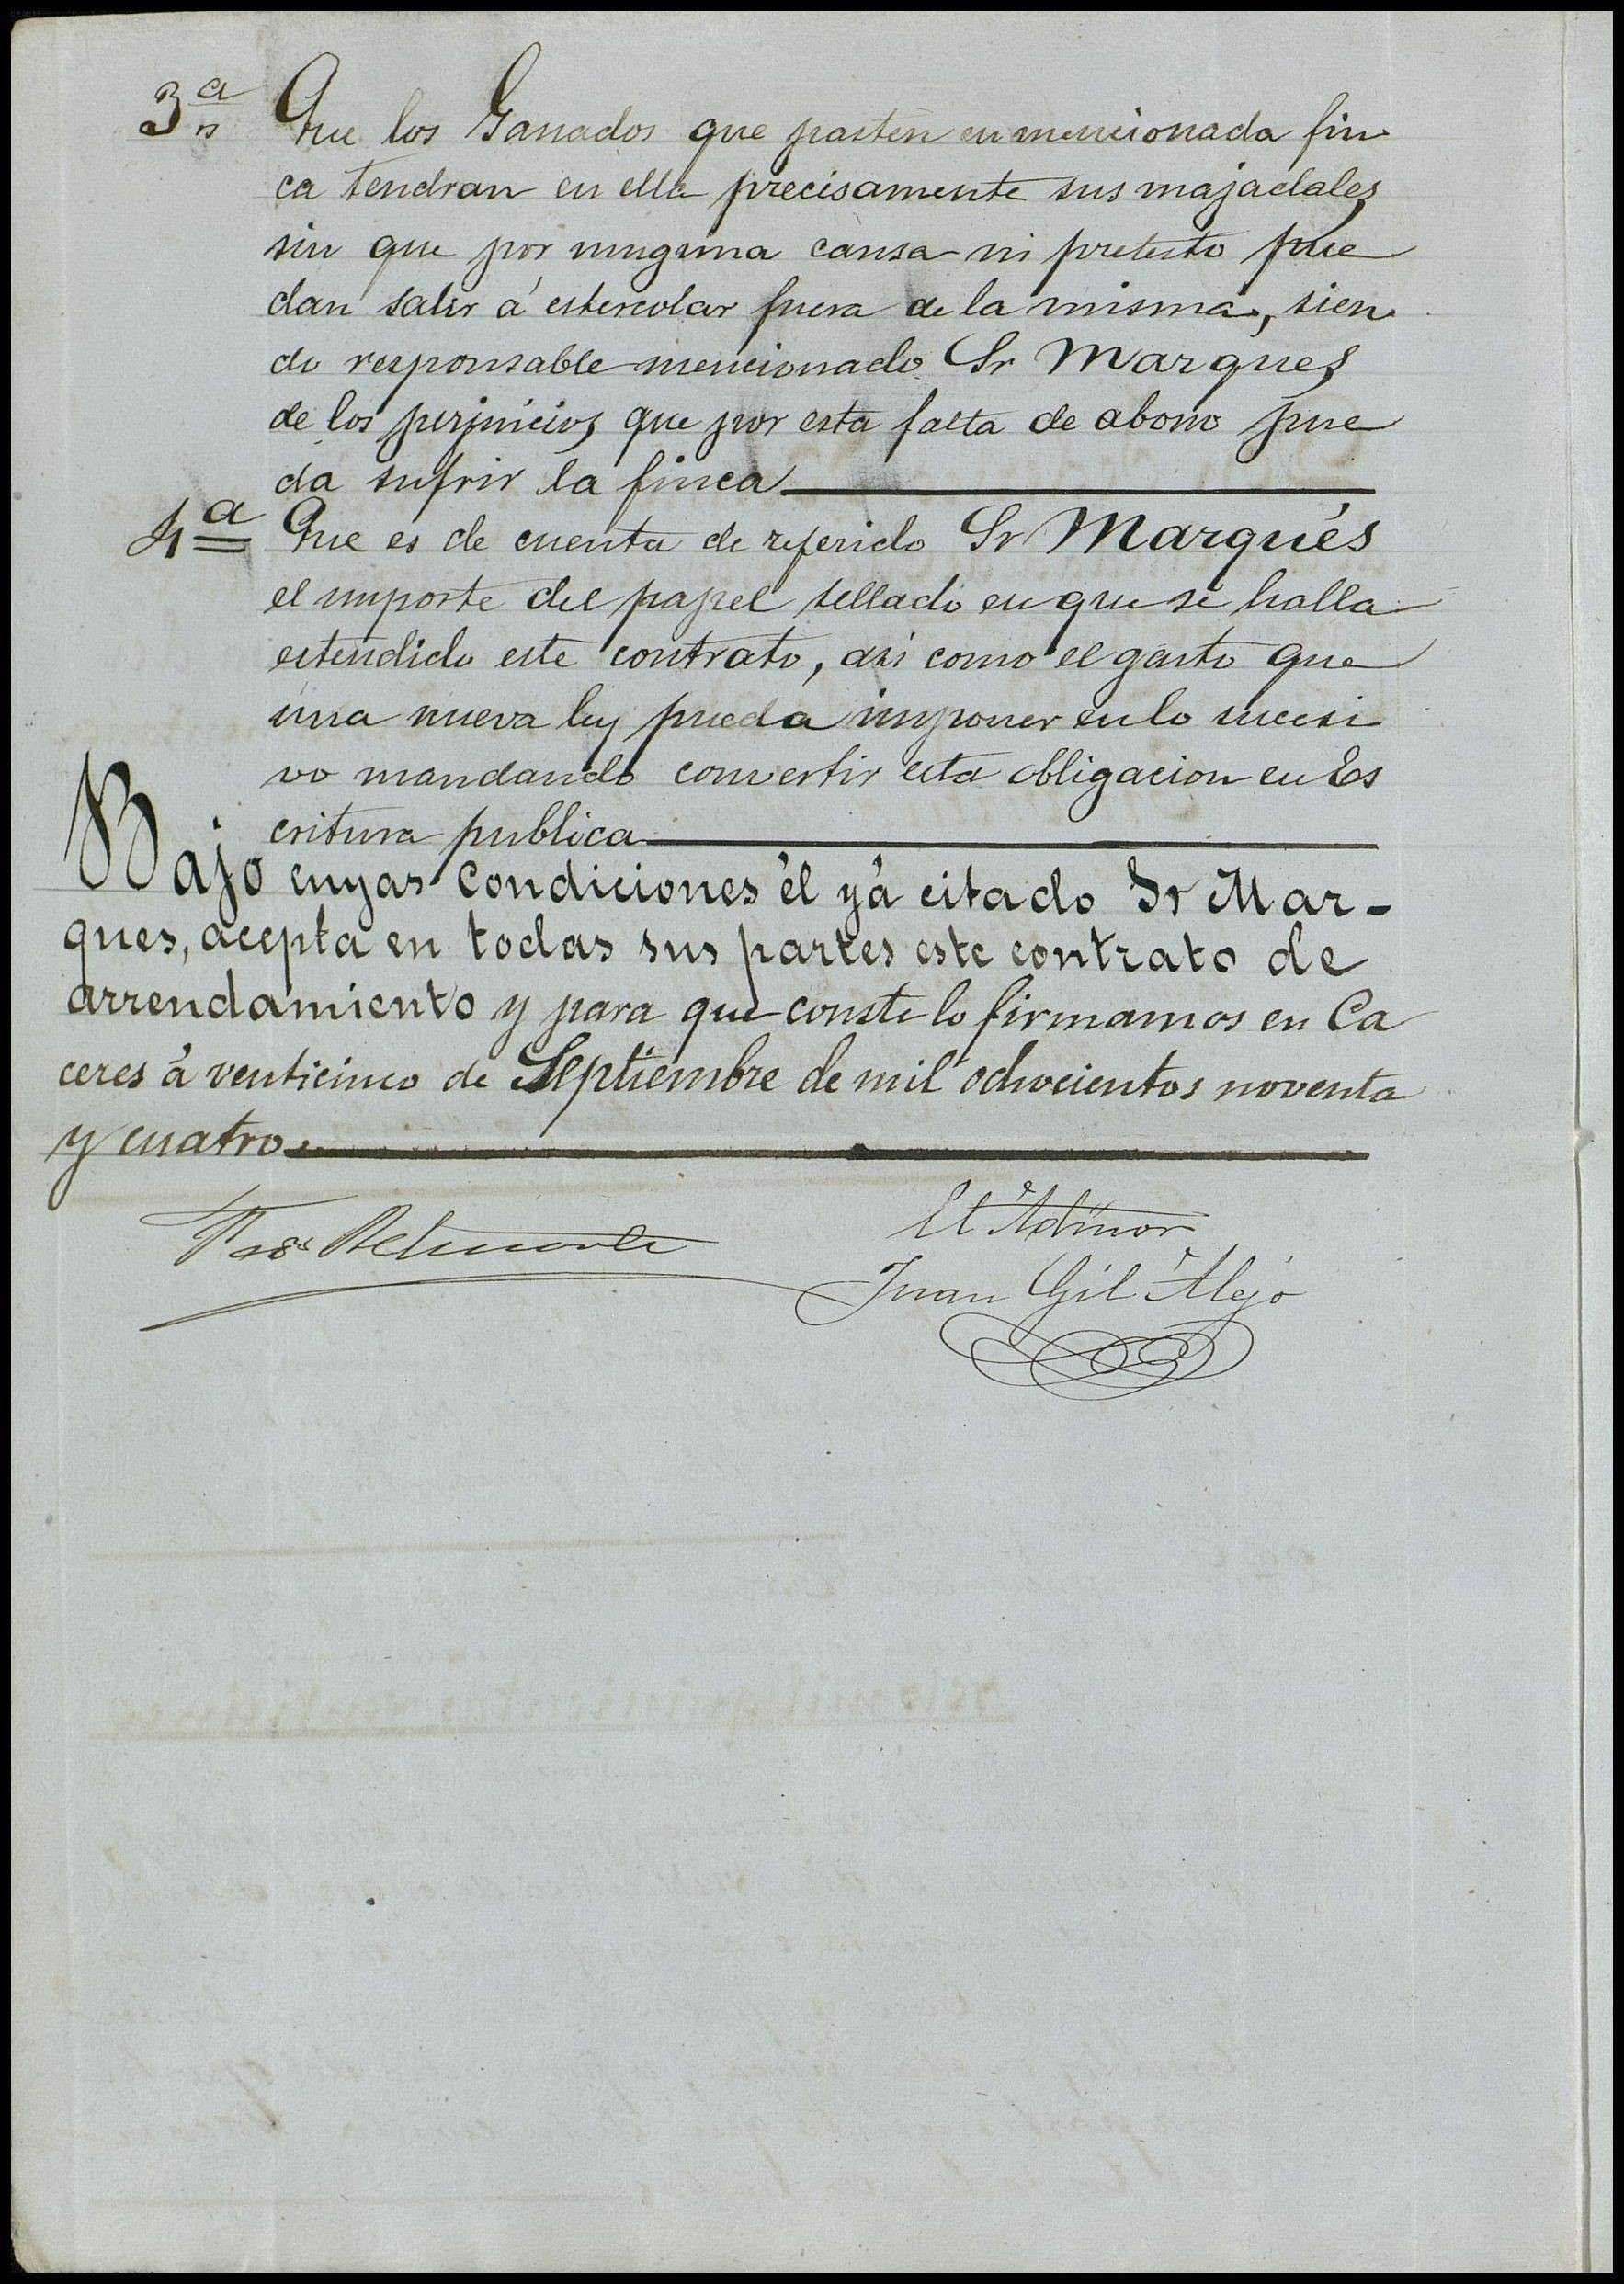 3ª Que los Ganados que pasten en mencionada fin
ca tendran en ella precisamente sus majadales
sin que por ninguna causa ni pretesto pue
dan salir á estercolar fuera de la misma, sien
do responsable mencionado Sr Marques
de los perjuicios que por esta falta de abono pue
da sufrir la finca
4ª Que es de cuenta de referido Sr Marqués
el importe del papel sellado en que se halla
estendido este contrato, asi como el gasto que
una nueva ley pueda imponer en lo sucesi
vo mandando convertir esta obligacion en Es
critura publica
Bajo cuyas condiciones él yá citado Sr Mar-
ques, acepta en todas sus partes este contrato de
arrendamiento y para que conste lo firmamos en Ca
ceres á venticinco de Septiembre de mil ochocientos noventa
y cuatro.
El Admor
Juan Gil Alejo